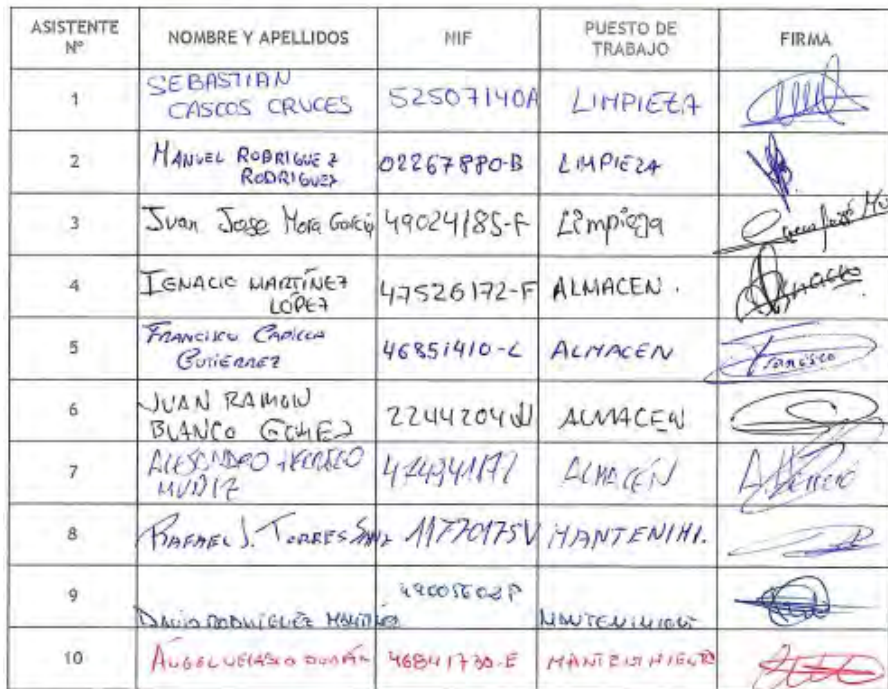 ASISTENTE
Nº
NOMBRE Y APELLIDOS
NIF
PUESTO DE
TRABAJO
FIRMA
1
SEBASTIAN
CASCOS CRUCES
52507140A
LIMPIEZA
2
MANUEL RODRIGUEZ
RODRIGUEZ
02267880-B
LIMPIEZA
3
Juan Jose Mora García
49024185-F
Limpieza
4
IGNACIO MARTÍNEZ
LOPEZ
47526172-F
ALMACEN.
Ignacio
5
FRANCISCO
GUTIERREZ
46851410-L
ALMACEN
Francisco
6
JUAN RAMON
BLANCO GOMEZ
2244204W
ALMACEN
7
ALEJANDRO
MUÑIZ
ALMACÉN
8
RAFAEL J. TORRES SANZ
11770175V
MANTENIMI.
9
DAVID RODRIGUEZ MARTINEZ
MANTENIMIENT
10
ANGEL VELASCO
46841730-E
MANTENIMIENTO